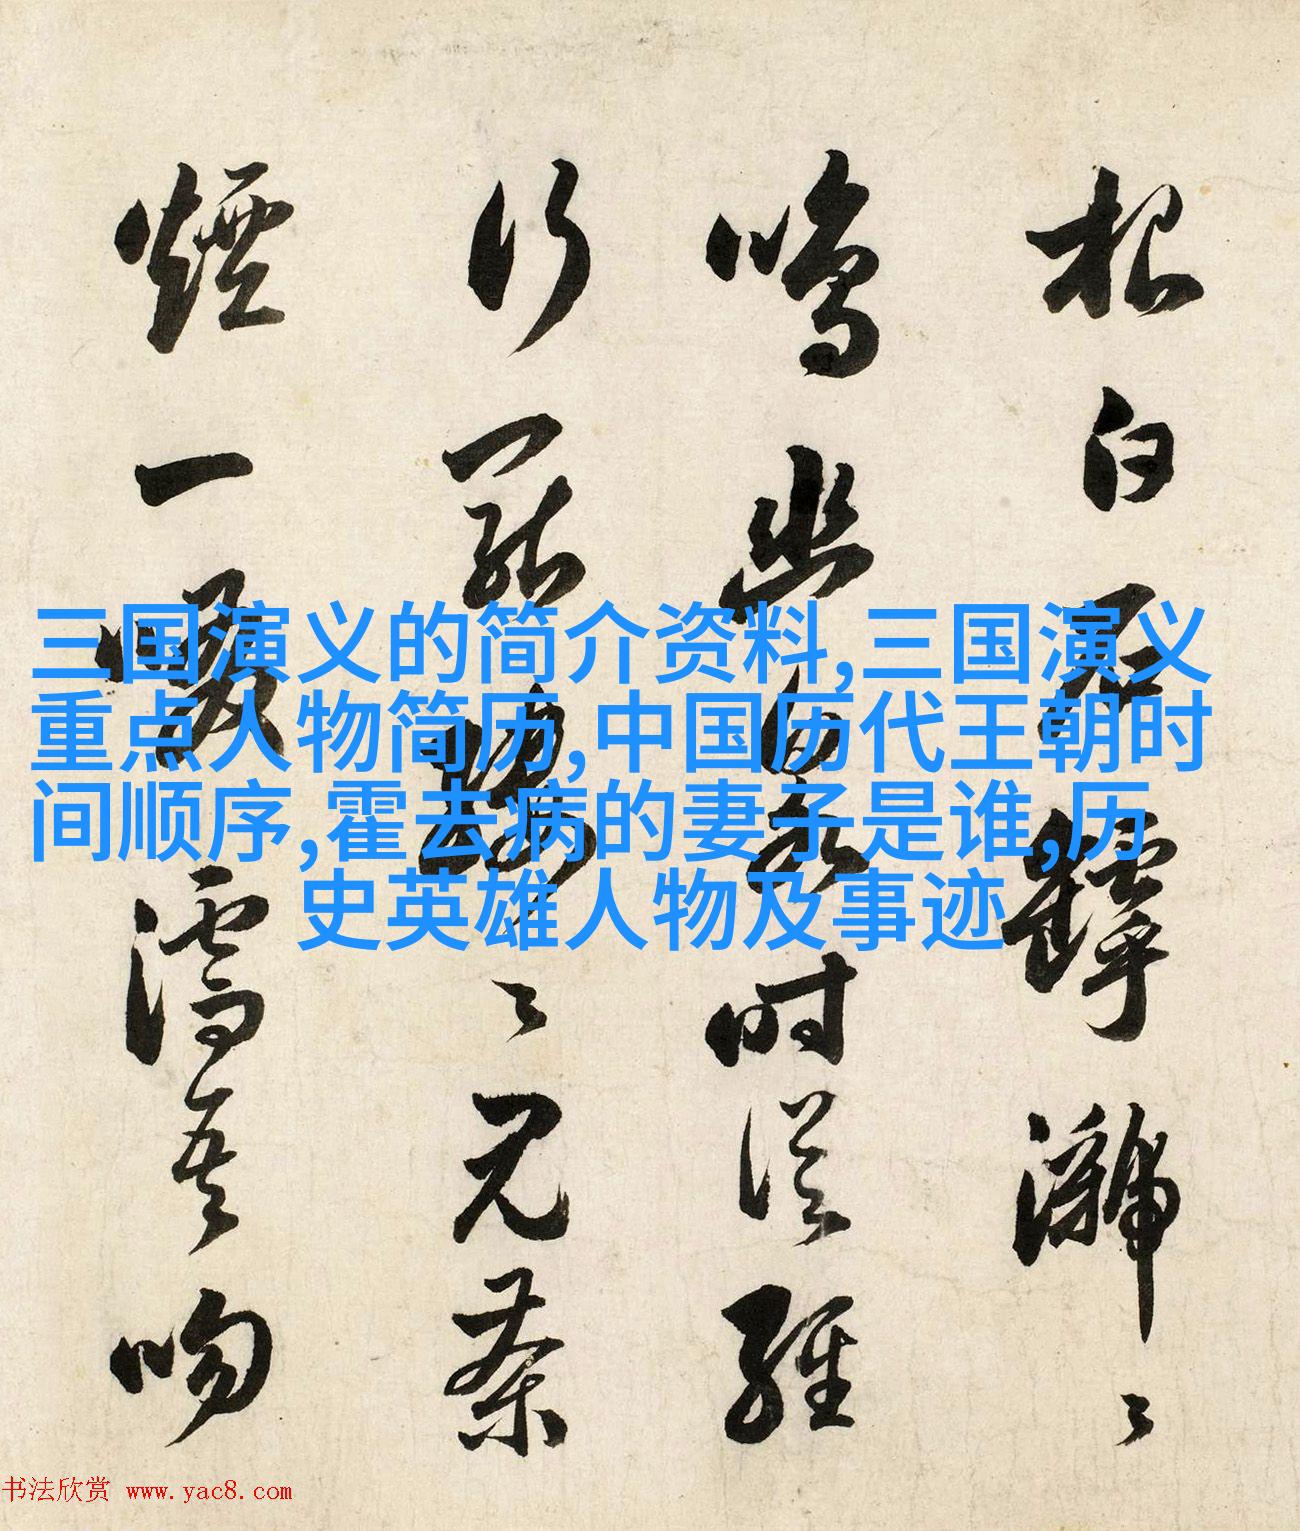 三国演义的简介资料,三国演义
重点人物简历,中国历代王朝时
间顺序,霍去病的妻子是谁,历
史英雄人物及事迹
根白石
鳴幽 時從
行 見茶
煙一 濡吾吻
书法欣赏 www.yac8.com